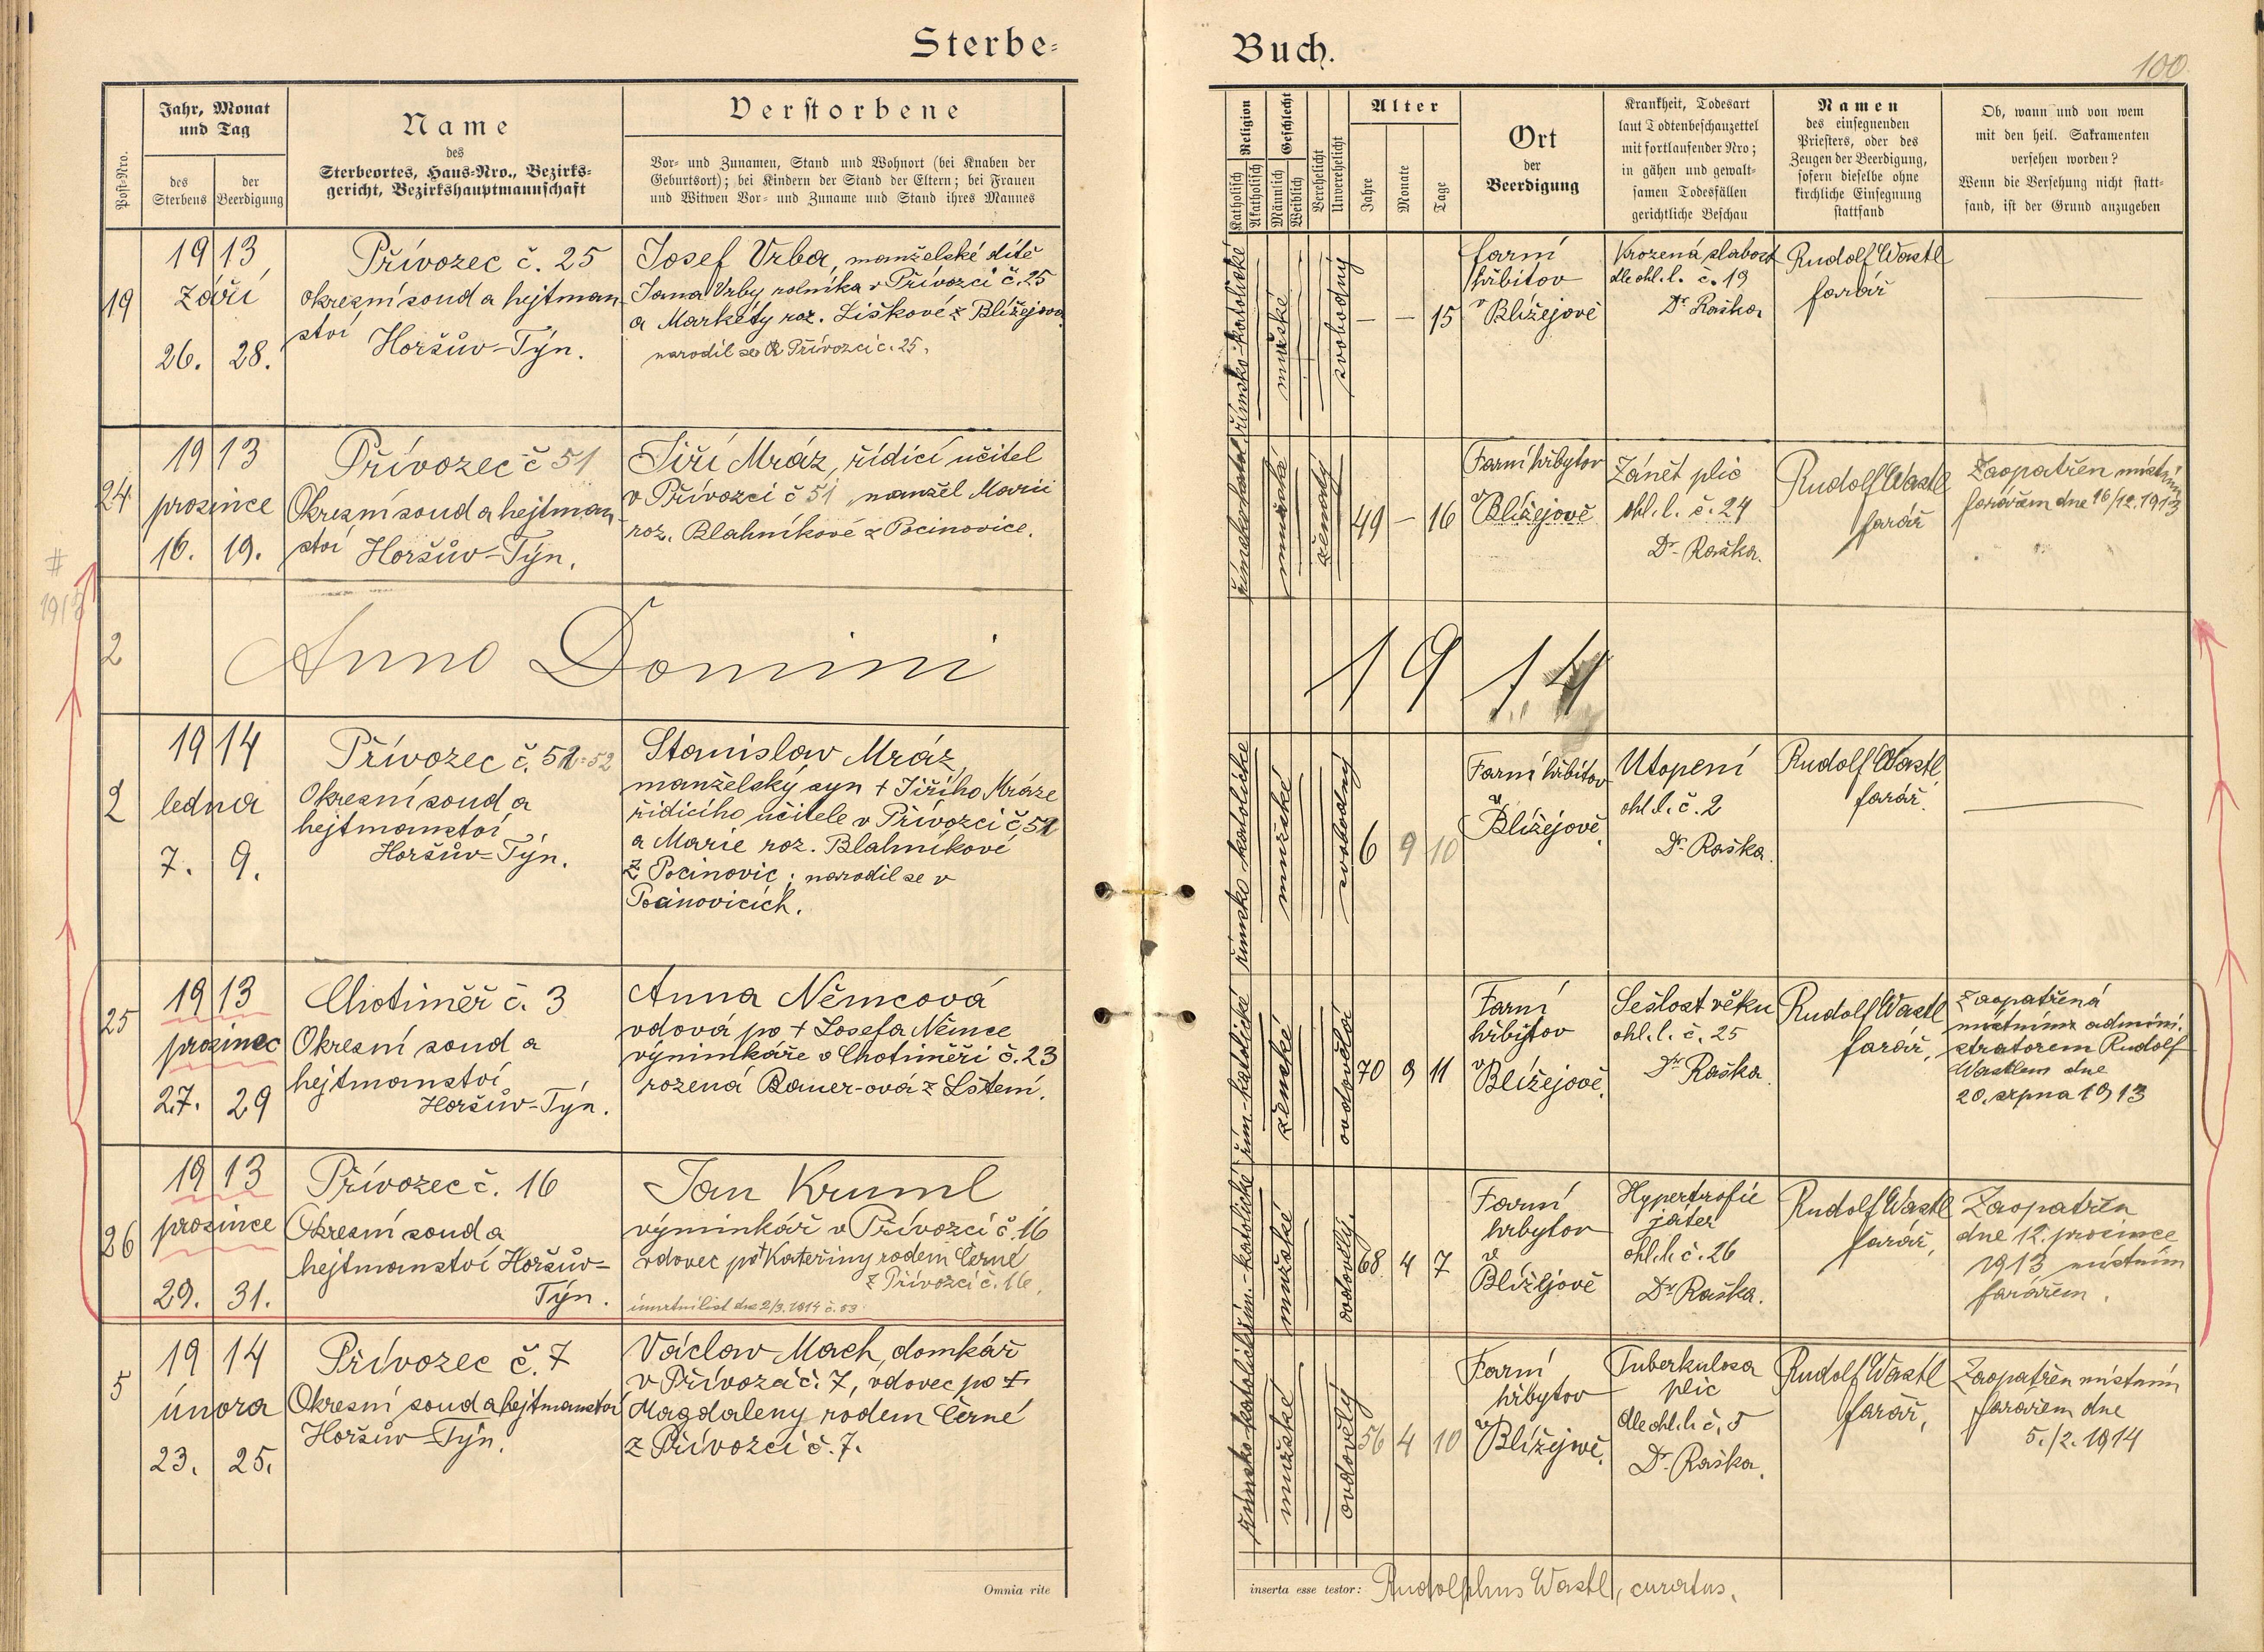 Sterbe-
Buch.
100
Post-Nro.
Jahr, Monat
und Tag
des
Sterbens
der
Beerdigung
Name
des
Sterbeortes, Haus-Nro., Bezirks-
gericht, Bezirkshauptmannschaft
Verstorbene
Vor- und Zunamen, Stand und Wohnort (bei Knaben der
Geburtsort); bei Kindern der Stand der Eltern; bei Frauen
und Witwen Vor- und Zuname und Stand ihres Mannes
Religion
Katholisch
Akatholisch
Geschlecht
Männlich
Weiblich
Verehelicht
Unverehelicht
Alter
Jahre
Monate
Tage
Ort
der
Beerdigung
Krankheit, Todesart
laut Todtenbeschauzettel
mit fortlaufender Nro;
in gähen und gewalt-
samen Todesfällen
gerichtliche Beschau
Namen
des einsegnenden
Priesters, oder des
Zeugen der Beerdigung,
sofern dieselbe ohne
kirchliche Einsegnung
stattfand
Ob, wann und von wem
mit den heil. Sakramenten
versehen worden?
Wenn die Versehung nicht statt-
fand, ist der Grund anzugeben
19
1913
září
26. 28.
Přívozec č. 25
okresní soud a hejtman
ství
Horšův-Týn.
Josef Vrba, manželské dítě
Jana Vrby rolníka v Přívozci č. 25
a Markéty roz. Liškové z Blížejova
narodil se v Přívozci č. 25.
římsko-katolické
mužské
svobodný
— — 15
farní
hřbitov
v Blížejově
Vrozená slabost
dle ohl. l. č. 19
Dr. Raška
Rudolf Wastl
farář
—
24
1913
prosince
16. 19.
Přívozec č 51
Okresní soud a hejtman
ství Horšův-Týn.
Jiří Mráz, řídící učitel
v Přívozci č 51, manžel Marii
roz. Blahníkové z Pocinovice.
mužské
ženatý
49 — 16
Farní hřbytov
v Blížejově
Zánět plic
ohl. l. č. 24
Dr. Raška.
Rudolf Wastl
farář
Zaopatřen místním
farářem dne 16/12. 1913
#
2
Anno Domini
19 14
2
1914
ledna
7. 9.
Přívozec č. 52=52
Okresní soud a
hejtmanství
Horšův-Týn.
Stanislav Mráz,
manželský syn + Jiřího Mráze
řídicího učitele v Přívozci č. 51
a Marie roz. Blahníkové
z Pocinovic; narodil se v
Pocinovicích.
římsko katolické
mužské
svobodný
6 9 10
Farní hřbitov
v
Blížejově.
Utopení
ohl. l. č. 2
Dr. Raška.
Rudolf Wastl
farář.
—
25
1913
prosinec
27. 29
Chotiměř č. 3
Okresní soud a
hejtmanství
Horšův-Týn.
Anna Němcová
vdová po + Josefa Němce
výminkáře v Chotiměři č. 23
rozená Bauer-ová z Lštení.
řím.-katolické
ženské
ovdovělá
70 9 11
Farní
hřbitov
v
Blížejově.
Sešlost věku
ohl. l. č. 25
Dr. Raška.
Rudolf Wastl
farář,
Zaopatřená
místním admini-
stratorem Rudolf
Wastlem dne
20. srpna 1913
26
1913
prosince
29. 31.
Přívozec č. 16
Okresní soud a
hejtmanství Horšův-
Týn.
Jan Kruml
výminkář v Přívozci č. 16
vdovec po + Kateřiny rodem Černé
z Přívozci č. 16.
úmrtní list dne 2/3. 1914 č. 53
řím.-katolické
mužské
ovdovělý.
68 4 7
Farní
hřbytov
v
Blížejově
Hypertrofie
játer
ohl. l. č. 26
Dr Raška.
Rudolf Wastl
farář,
Zaopatřen
dne 12. prosince
1913 místním
farářem.
5
1914
února
23. 25.
Přívozec č. 7
Okresní soud a hejtmanství
Horšův-Týn.
Václav Mach, domkář
v Přívozci č. 7, vdovec po +
Magdaleny rodem Černé
z Přívozci č. 7.
římsko-katolické
mužské
ovdovělý
56 4 10
Farní
hřbytov
v
Blížejově.
Tuberkulosa
plic
dle ohl. l. č. 5
Dr. Raška.
Rudolf Wastl
farář,
Zaopatřen místním
farářem dne
5./2. 1914
Omnia rite
inserta esse testor: Rudolphus Wastl, curatus.